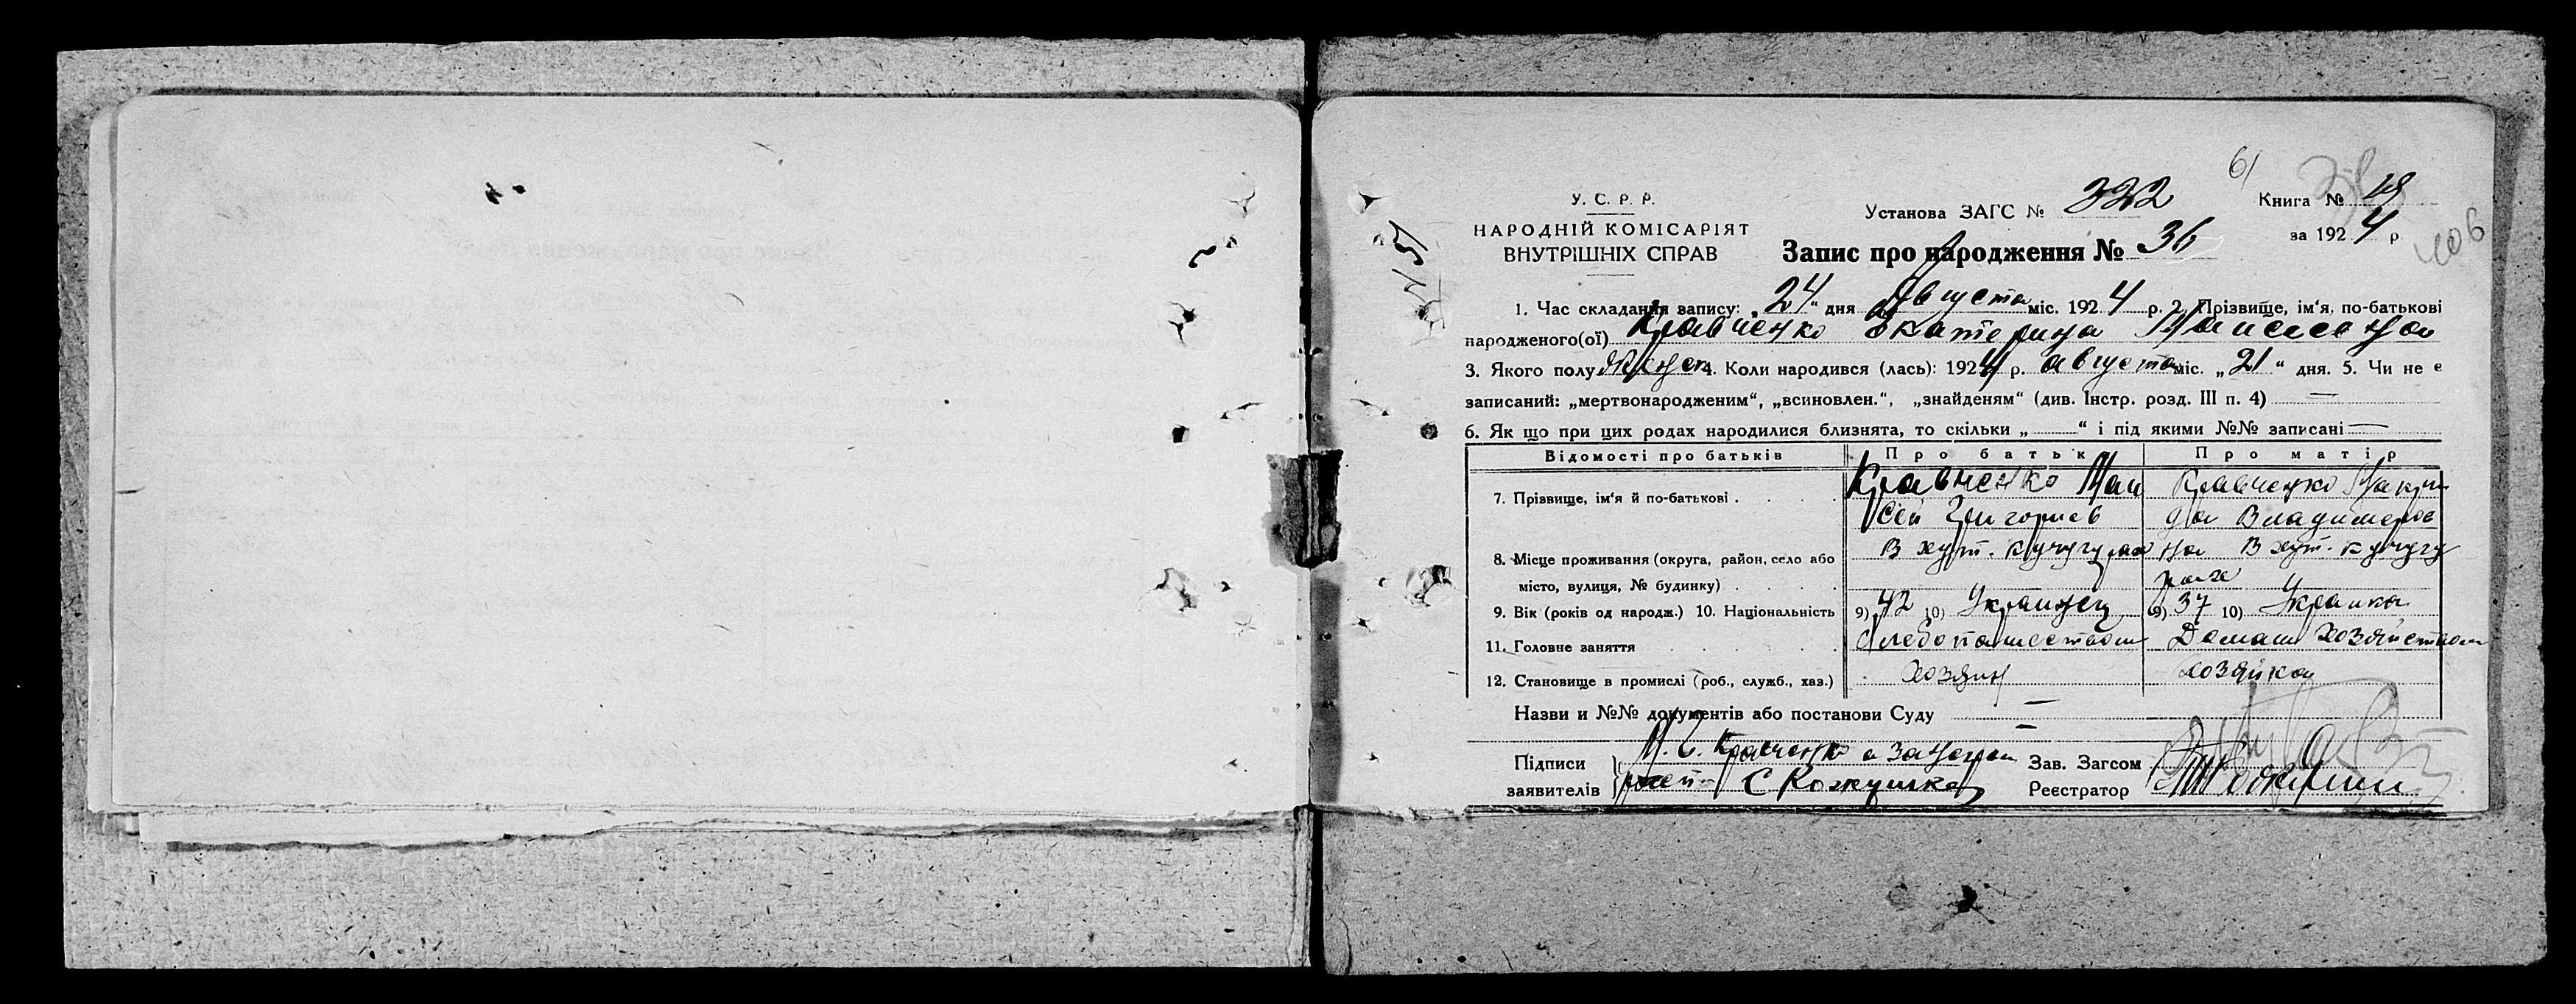 61
У. С. Р. Р.
НАРОДНІЙ КОМІСАРІЯТ
ВНУТРІШНІХ СПРАВ
Установа ЗАГС № 322
Книга № 19
за 1924 р
406
Запис про народження № 36
1. Час складання запису: „24“ дня Августа міс. 1924 р. 2. Прізвище, ім‘я, по-батькові
народженого(ої) Кравченко Екатерина
3. Якого полу Женск 4. Коли народився (лась): 1924 р. августа міс. „21“ дня. 5. Чи не є
записаний: „мертвонародженим“, „всиновлен.“, „знайденям“ (див. Інстр. розд. III п. 4) —
6. Як що при цих родах народилися близнята, то скільки „ “ і під якими №№ записані —
Відомості про батьків Про батьк Про матір
7. Прізвище, ім‘я й по-батькові Кравченко Мои Кравченко Макри
сей Григориев да Владимиров
8. Місце проживання (округа, район, село або В хут. Кучугурах на В хут. Кучугу
місто, вулиця, № будинку) рах
9. Вік (років од народж.) 10. Національність 9) 42 10) Украинец 9) 37 10) Украинка
11. Головне заняття Хлебопашеством Домаш хозяйством
12. Становище в промислі (роб., служб., хаз.) хозяин хозяйка
Назви и №№ документів або постанови Суду —
Підписи Кравченко а за негра
заявителів С Кожушко
Зав. Загсом
Реєстратор